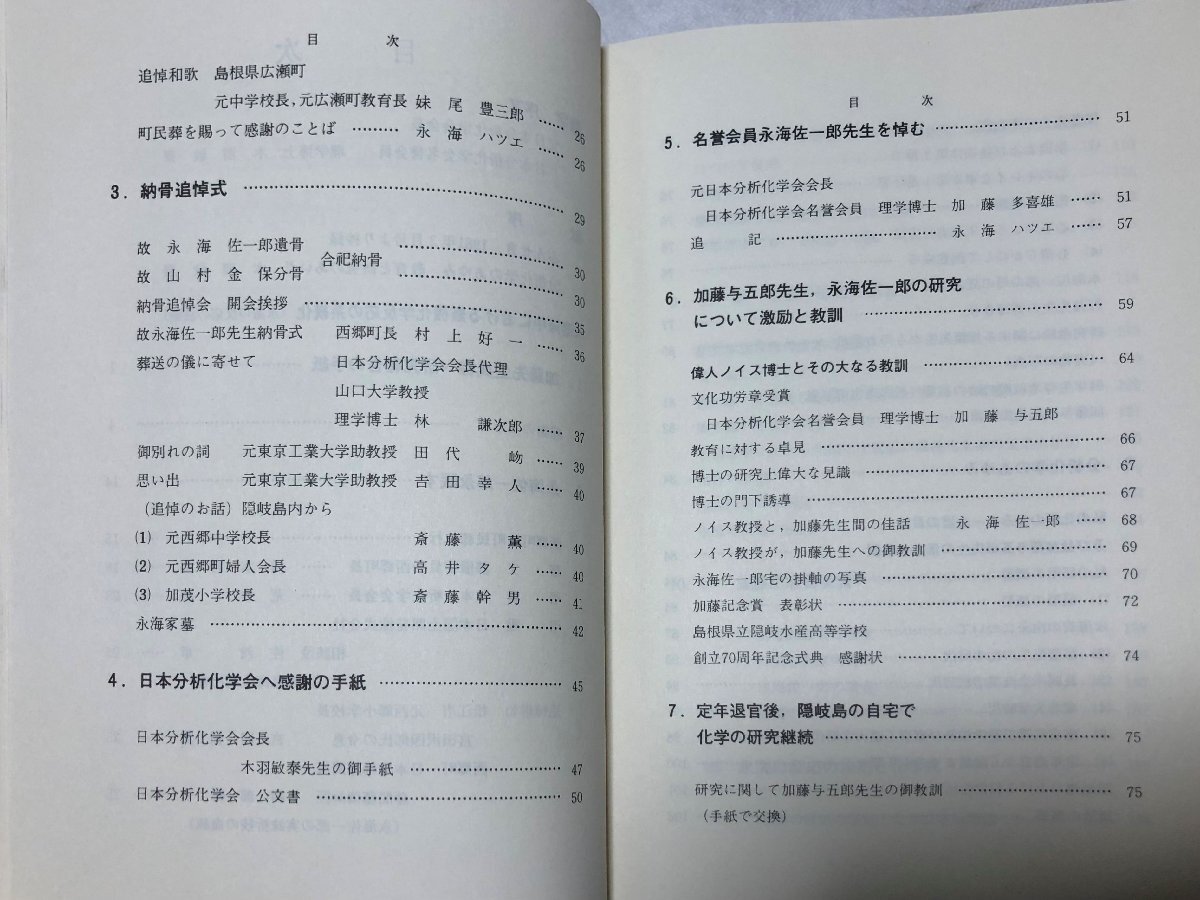 目 次
追悼和歌 島根県広瀬町
元中学校長，元広瀬町教育長 妹 尾 豊三郎 …… 26
町民葬を賜って感謝のことば ……… 永 海 ハツエ …… 26
3．納骨追悼式 …… 29
故 永 海 佐一郎遺骨 …… 30
合祀納骨
故 山 村 金 保分骨 …… 30
納骨追悼会 開会挨拶 …… 35
故永海佐一郎先生納骨式 西郷町長 村 上 好 一 …… 36
葬送の儀に寄せて 日本分析化学会会長代理
山口大学教授
理学博士 林 謙次郎 …… 37
御別れの詞 元東京工業大学助教授 田 代 㘴 …… 39
思い出 元東京工業大学助教授 吉 田 幸 人 …… 40
（追悼のお話）隠岐島内から
(1) 元西郷中学校長 …… 斎 藤 薫 …… 40
(2) 元西郷町婦人会長 高 井 タ ケ …… 40
(3) 加茂小学校長 斎 藤 幹 男 …… 41
永海家墓 …… 42
4．日本分析化学会へ感謝の手紙 …… 45
日本分析化学会会長
木羽敏泰先生の御手紙 …… 47
日本分析化学会 公文書 …… 50
目 次
5．名誉会員永海佐一郎先生を悼む …… 51
元日本分析化学会会長
日本分析化学会名誉会員 理学博士 加 藤 多喜雄 …… 51
追 記 …… 永 海 ハツエ …… 57
6．加藤与五郎先生，永海佐一郎の研究
について激励と教訓 …… 59
偉人ノイス博士とその大なる教訓 …… 64
文化功労章受賞
日本分析化学会名誉会員 理学博士 加 藤 与五郎
教育に対する卓見 …… 66
博士の研究上偉大な見識 …… 67
博士の門下誘導 …… 67
ノイス教授と，加藤先生間の佳話 永 海 佐一郎 …… 68
ノイス教授が，加藤先生への御教訓 …… 69
永海佐一郎宅の掛軸の写真 …… 70
加藤記念賞 表彰状 …… 72
島根県立隠岐水産高等学校
創立70周年記念式典 感謝状 …… 74
7．定年退官後，隠岐島の自宅で
化学の研究継続 …… 75
研究に関して加藤与五郎先生の御教訓 …… 75
（手紙で交換）